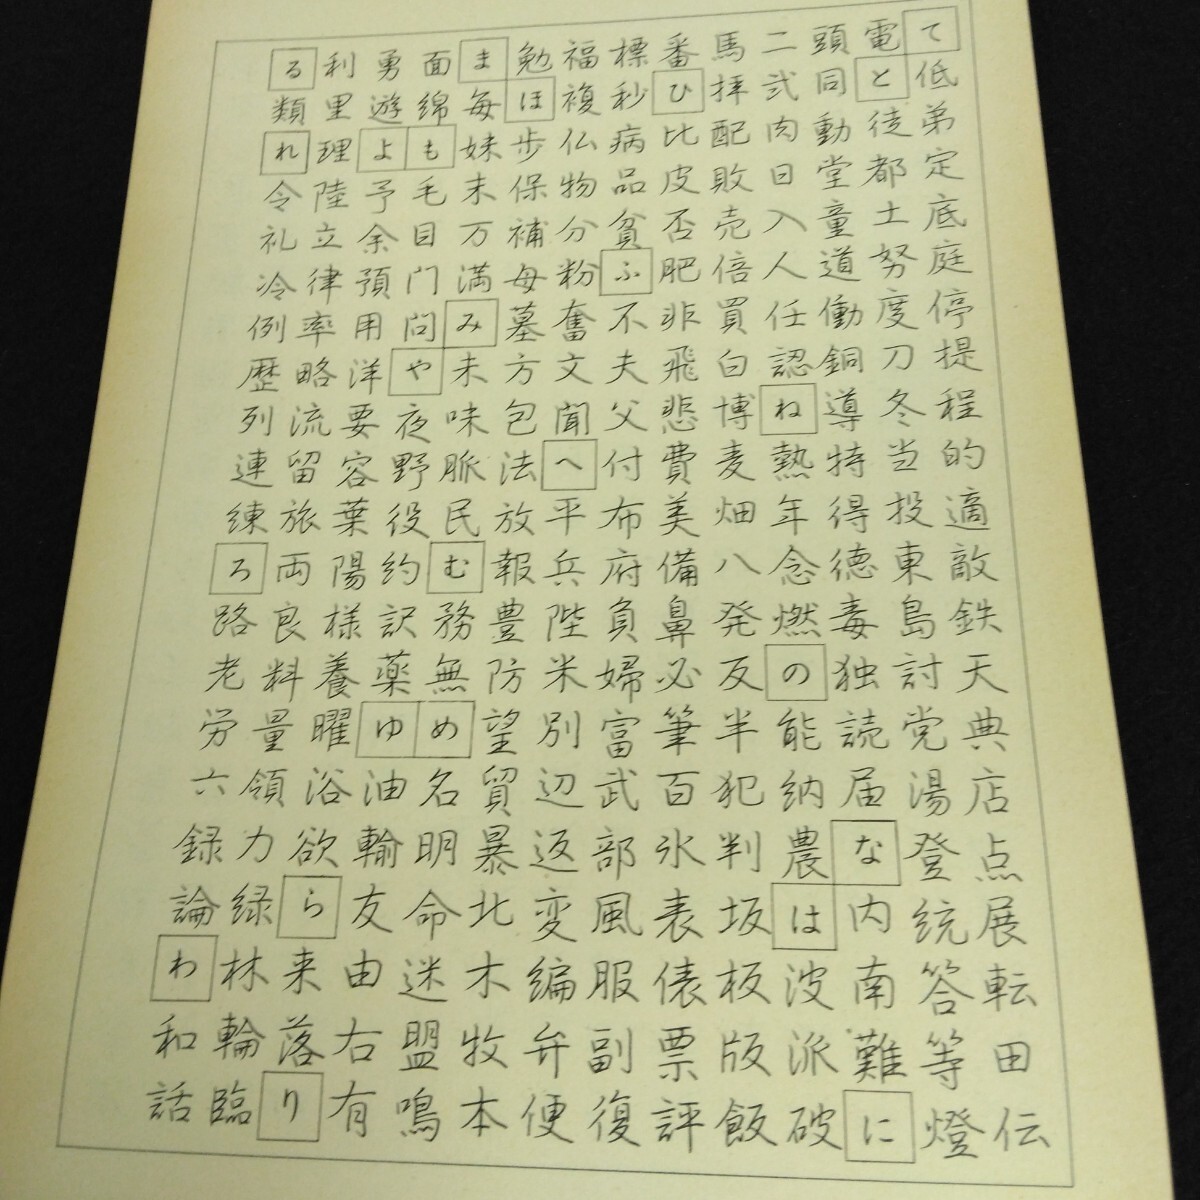 て低弟定底庭停提程的適敵鉄天典店点展転田伝
電と徒都土努度刀冬当投東島討党湯登統答等燈
頭同動堂童道働銅導特得徳毒独読届な内南難に
二弐肉日入人任認ね熱年念燃の能納農は波派破
馬拝配敗売倍買白博麦畑八発反半犯判坂板版飯
番ひ比皮否肥非飛悲費美備鼻必筆百氷表俵票評
標秒病品貧ふ不夫父付布府負婦富武部風服副復
福複仏物分粉奮文聞へ平兵陛米別辺返変編弁便
勉ほ歩保補母墓方包法放報豊防望貿暴北木牧本
ま毎妹末万満み未味脈民む務無め名明命迷盟鳴
面綿も毛目門問や夜野役約訳薬ゆ油輸友由右有
勇遊よ予余預用洋要容葉陽様養曜浴欲ら来落り
利里理陸立律率略流留旅両良料量領力緑林輪臨
る類れ令礼冷例歴列連練ろ路老労六録論わ和話